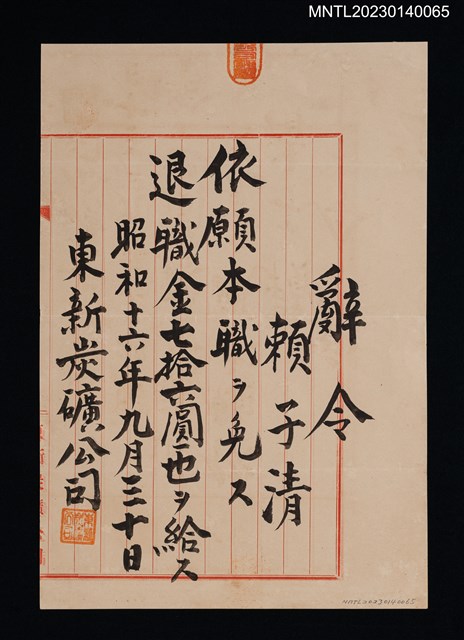 MNTL20230140065
辭令
賴子清
依願本職ヲ免ス
退職金七拾六圓也ヲ給ス
昭和十六年九月三十日
東新炭礦公司
MNTL20230140065